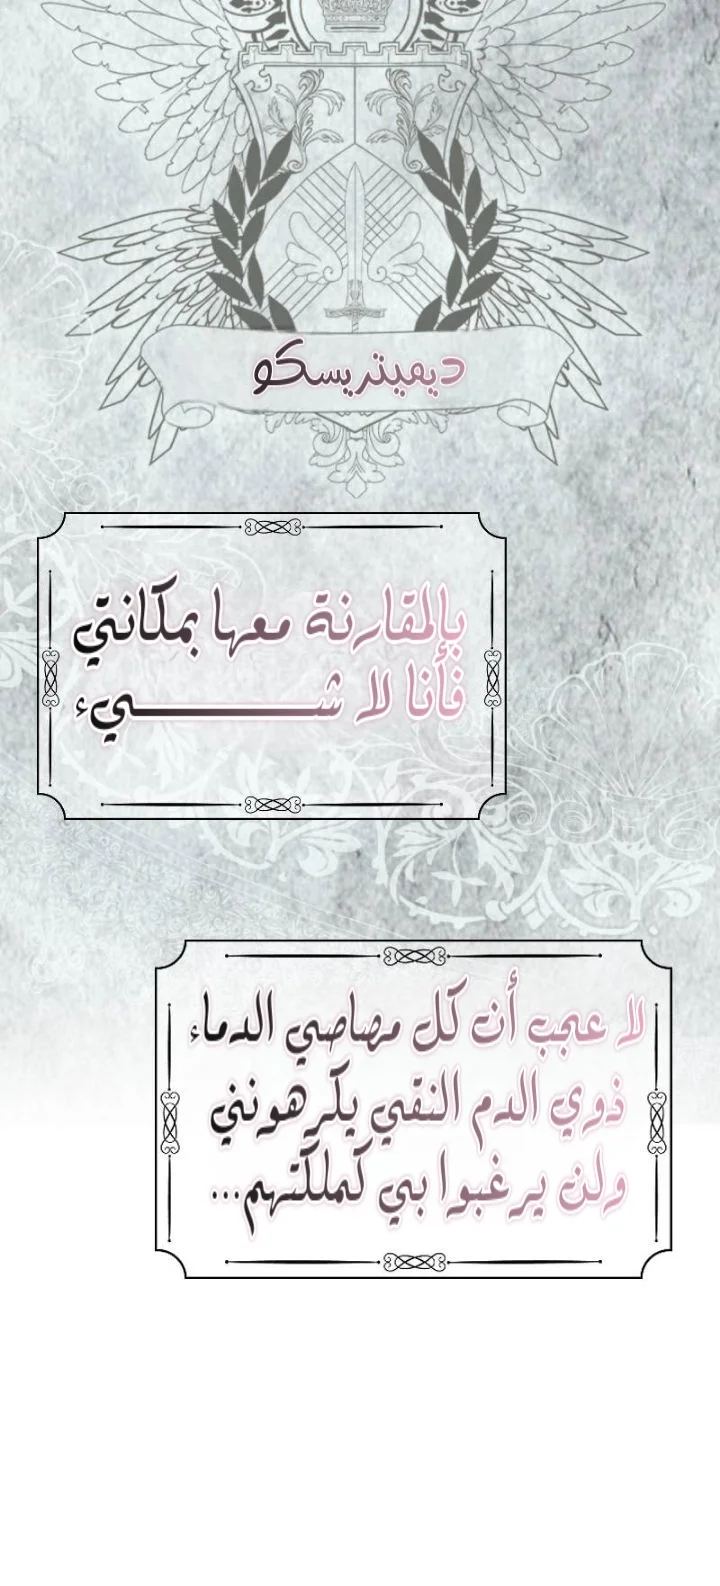 ديميتريسكو
بالمقارنة معها بمكانتي
فأنا لا شـــــــــــيء
لا عجب أن كل مصاصي الدماء
ذوي الدم النقي يكرهونني
ولن يرغبوا بي كملكتهم...